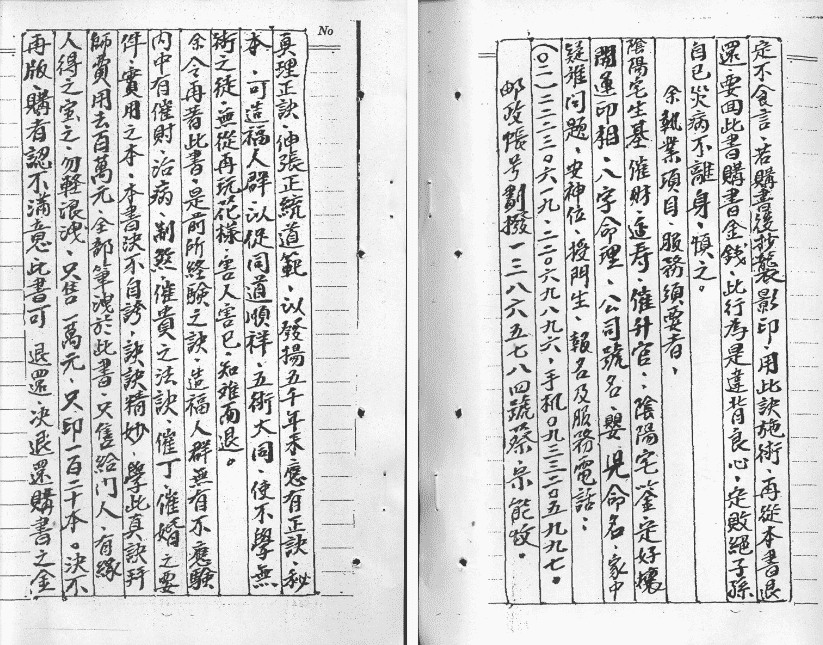 No
真理正訣、伸張正統道範、以發揚五千年來應有正訣、秘
本、可造福人群、以促同道順祥、五術大同、使不學無
術之徒、無從再玩花樣、害人害已、知难而退。
余今再著此書、是前所終驗之訣、造福人群無有不應驗
內中有催財、治病、制煞、催貴之法訣、催丁、催婚之要
件、實用之本、本書決不自誇、訣訣精妙、學此真訣拜
師費用去百萬元、全部筆洩於此書、只售給门人、有緣
人得之宝之、勿輕浪洩、只售一萬元、只印一百二十本。決不
再版、購者認不滿意此書可退還、決退還購書之金
定不食言、若購書後抄襲影印、用此訣施術、再從本書退
還、要回此書購書金錢、此行為是違背良心、定敗絕子孫
自已災病不離身、慎之。
余執業項目服務須要者、
陰陽宅生基催財、延壽、催升官、陰陽宅鉴定好壞
開運印相、八字命理、公司號名、嬰兒命名、家中
疑難问題、安神位、授門生、報名及服務電話：
(〇二)二二二三〇六一九、二二〇六九八九六、手机〇九三三二〇五九九七。
邮政帳号劃撥一三八六五七八四號蔡宗能收。